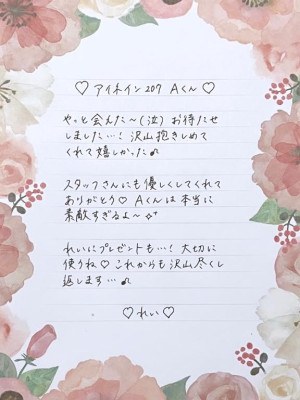 ♡ アイネイン 207 Aくん ♡
やっと会えた〜(泣) お待たせ
しました…! 沢山抱きしめて
くれて嬉しかった♪
スタッフさんにも優しくしてくれて
ありがとう♡ Aくんは本当に
素敵すぎるよ〜✧⁺
れいにプレゼントも…! 大切に
使うね♡ これからも沢山尽くし
返します…♪
♡ れい ♡